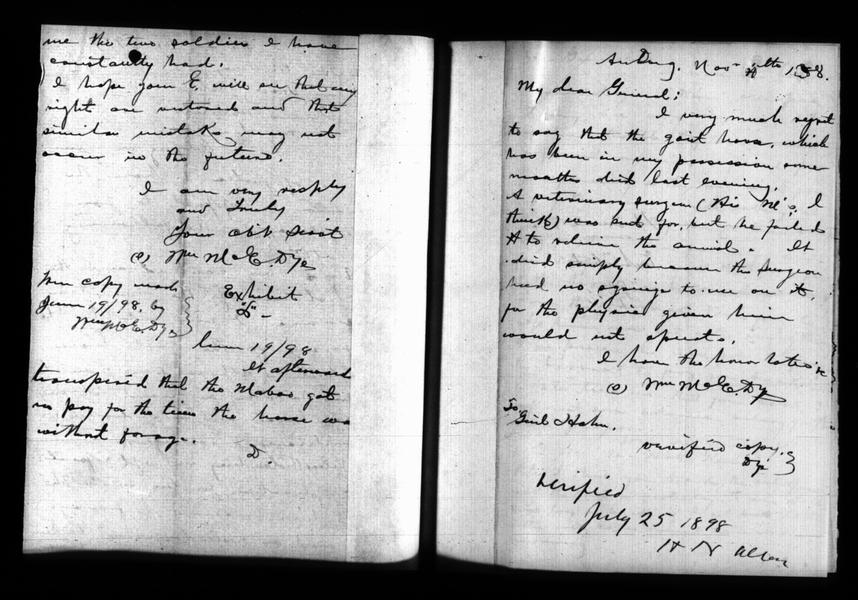 me the two soldiers I have
constantly had.
I hope your E. will see that my
rights are restored and that
similar mistake may not
occur in the future.
I am very resptly
and Truly
Your obt Servt
(s) Wm McE. Dye
True copy made
June 19/98, by
Wm McE. Dye
Exhibit
"D" -
June 19/98
It afterwards
transpired that the Maboo got
no pay for the time the horse was
without forage.
D.
An Dong, Nov 11th 1898.
My dear General;
I very much regret
to say that the gov't horse, which
has been in my possession some
months died last evening.
A veterinary surgeon (His M's, I
think) was sent for, but he failed
to relieve the animal. It
died simply because the surgeon
had no syringe to use on it,
for the physic given him
would not operate.
I have the honor to be &c
(s) Wm McE. Dye
To
Genl Hahn.
verified copy.
Dye
Verified
July 25 1898
H N Allen